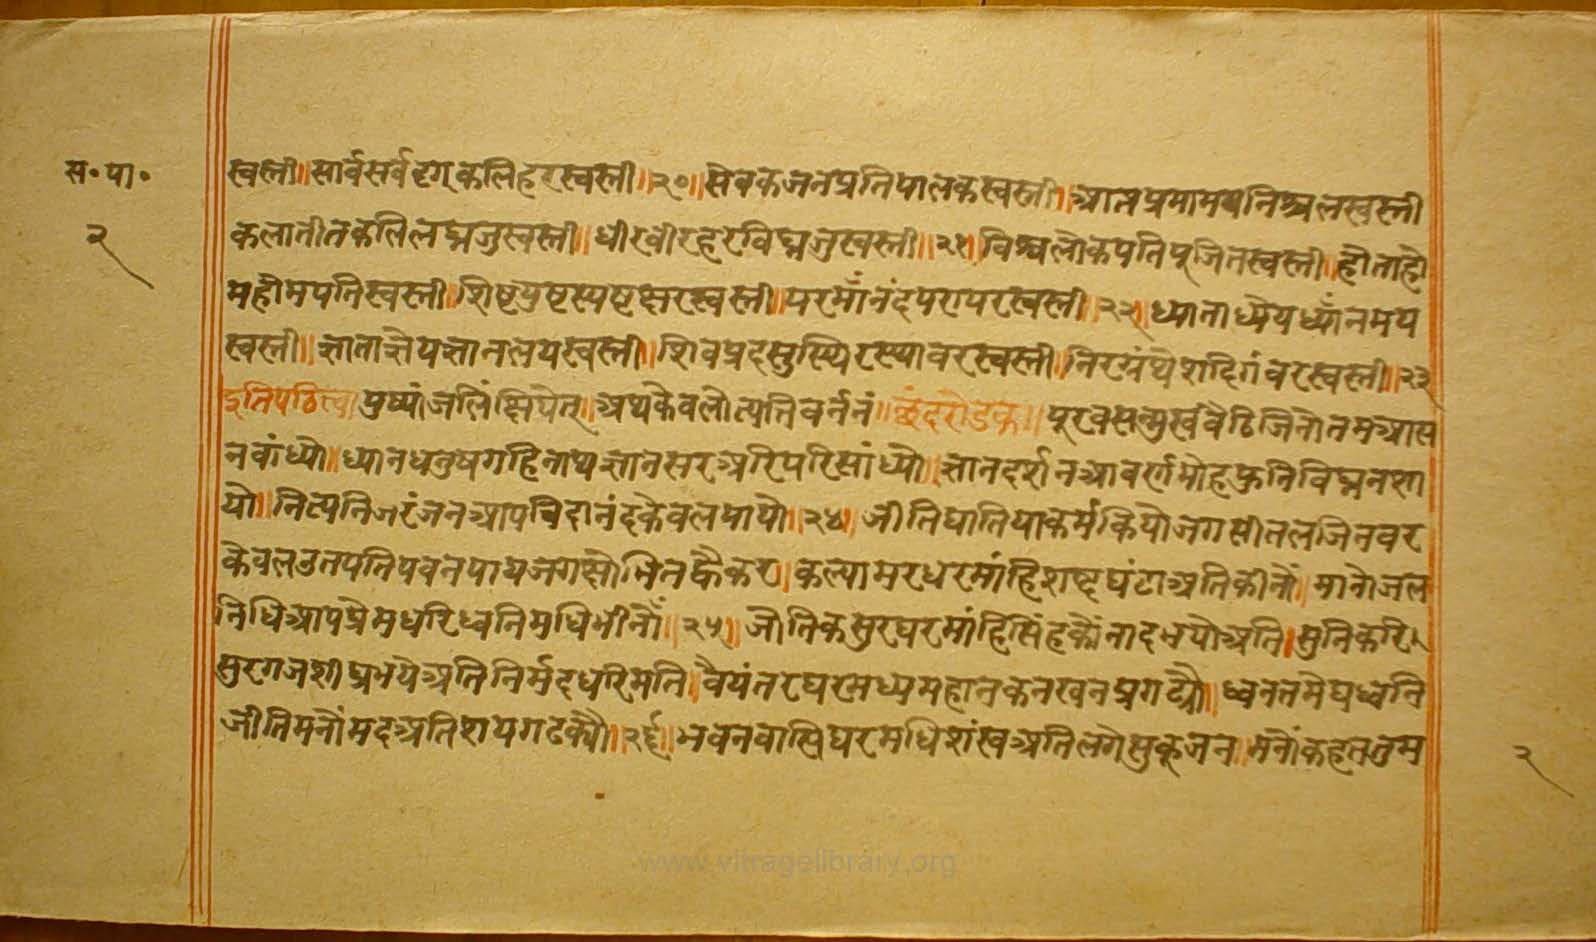 स॰ पा॰
२
स्वस्ती॥सार्वसर्वदृग् कलिहरस्वस्ती॥२०॥सेवकजनप्रतिपालकस्वस्ती॥आतप्रमामयनिश्चलस्वस्ती
कलातीतकलिलघ्नजुस्वस्ती॥धीरवीरहरविघ्नजुस्वस्ती॥२१॥विश्वलोकपतिपूजितस्वस्ती॥होताहो
महीमपतिस्वस्ती॥परमाँनंदपरापरस्वस्ती॥२२॥ध्याताध्येयध्याँनमय
स्वस्ती॥ज्ञाताज्ञेयज्ञानलयस्वस्ती॥शिवप्रदसुस्थिरस्थावरस्वस्ती॥निरग्रंथेशदिगंवरस्वस्ती॥२३
इतिपठित्वा पुष्पांजलिंक्षिपेत्॥अथकेवलोत्पत्तिवर्ननं॥छंदरोडक॥पूरवसन्मुखवैठिजिनोतमआस
नवांध्यो॥ध्यानधनुषगहिनाथज्ञानसरअरिपरिसांध्यो॥ज्ञानदर्शनआवर्णमोहफुनिविघ्ननशा
यो॥नित्यनिजरंजनआपचिदानंदकेवलपायो॥२४॥जीतिघातियाकर्मकियोजगसीतलजिनवर
केवलउतपतिपवनपायजगसोभितफैकर॥कल्पामरधरमांहिशष्टघंटाअतिकीनों॥मानोजल
निधिआपप्रेमधरिध्वनिमधिभीनों॥२५॥जोतिकसुरघरमांहिसिंहकोनादभयोअति॥सुनिकरि
सुरगजशीघ्रभयेअतिनिर्मदधरिमति॥वैयंतरघरमध्यमहानकनखनप्रगट्यौ॥ध्वनतमेघध्वनि
जीतिमनोंमदअतिशयगढक्यौ॥२६॥भवनवासिघरमधिशंखअतिलगेसुकूजन॥मनोंकहततुम
२
www.vitragelibrary.org